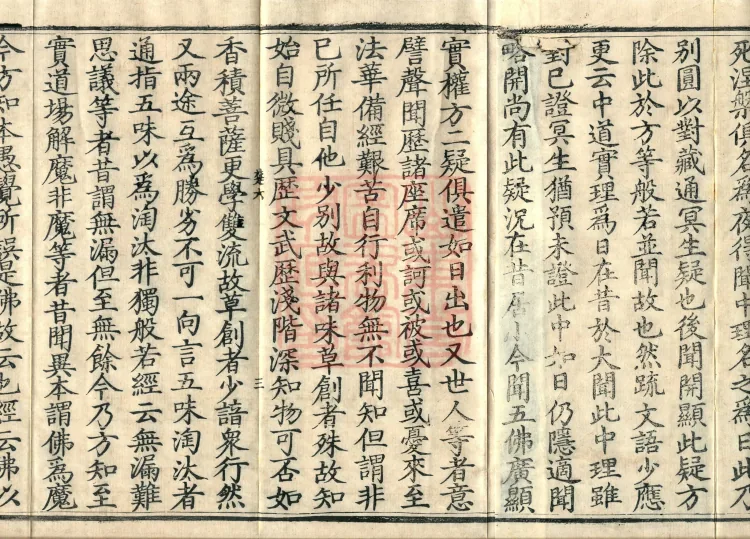 死涅槃俱名爲夜得聞中理名之爲日此乃
別圓以對藏通冥生疑也後聞開顯此疑方
除此於方等般若並聞故也然疏文語少應
更云中道實理爲日在昔於大聞此中理雖
對已證冥生猶預未證此中如日仍隱適聞
略開尚有此疑況在昔居小今聞五佛廣顯
實權方二疑俱遣如日出也又世人等者意
譬聲聞歷諸座席或訶或被或喜或憂來至
法華備經艱苦自行利物無不聞知但謂非
已所任自他少別故與諸味草創者殊故知
始自微賤具歷文武歷淺階深知物可否如
三
香積菩薩更學雙流故草創者少諳衆行然
又兩途互爲勝劣不可一向言五味淘汰者
通指五味以爲淘汰非獨般若經云無漏難
思議等者昔謂無漏但至無餘今乃方知至
實道場解魔非魔等者昔聞異本謂佛爲魔
今方知本愚覺所誤是佛故云也經云佛以